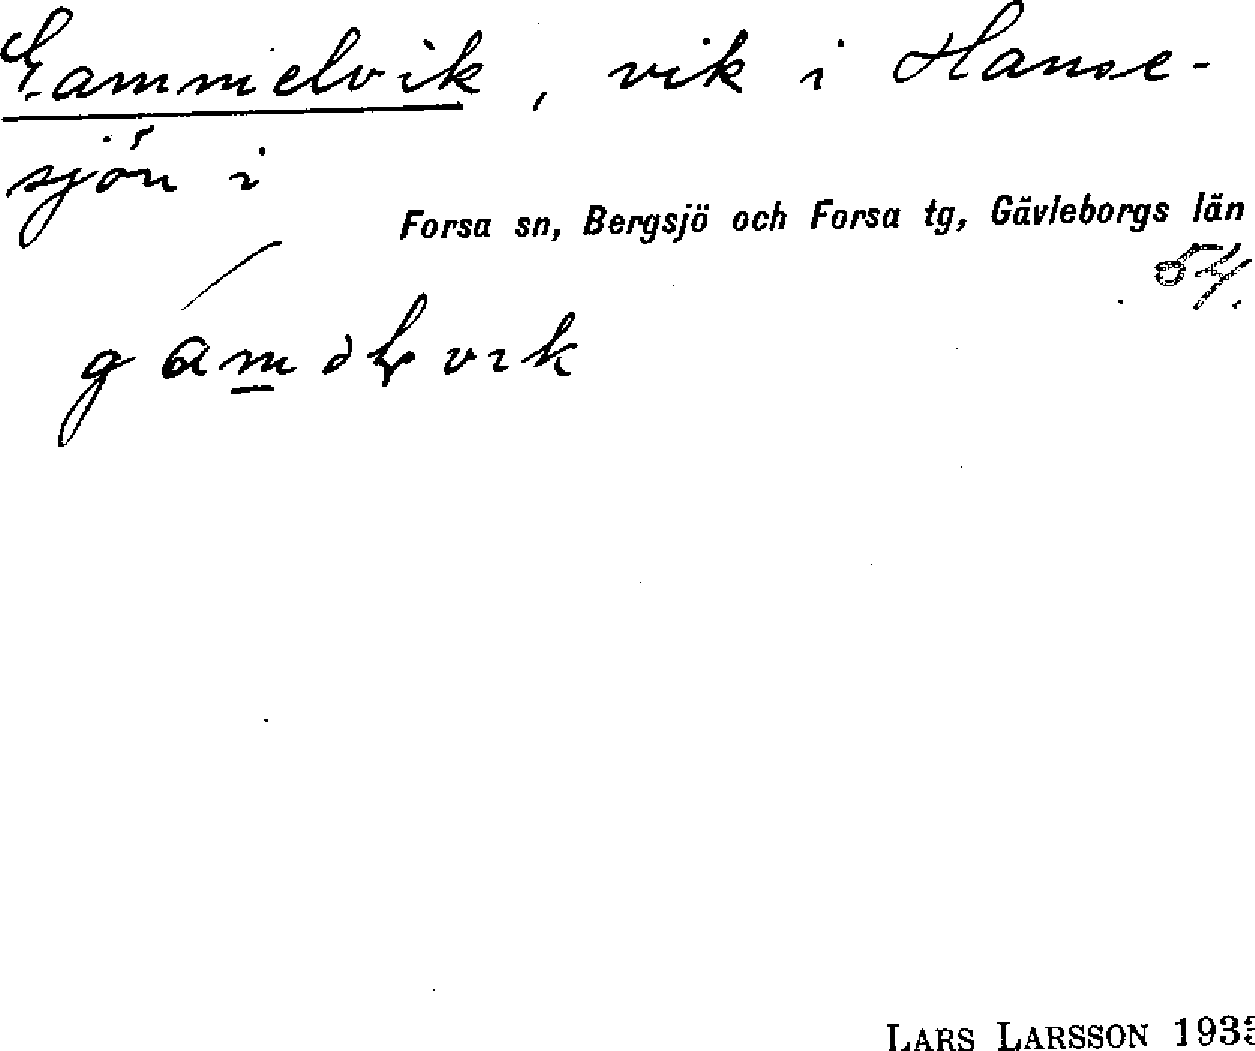 Gammelvik, vik i Hanse-
sjön i
Forsa sn, Bergsjö och Forsa tg, Gävleborgs län
54.
LARS LARSSON